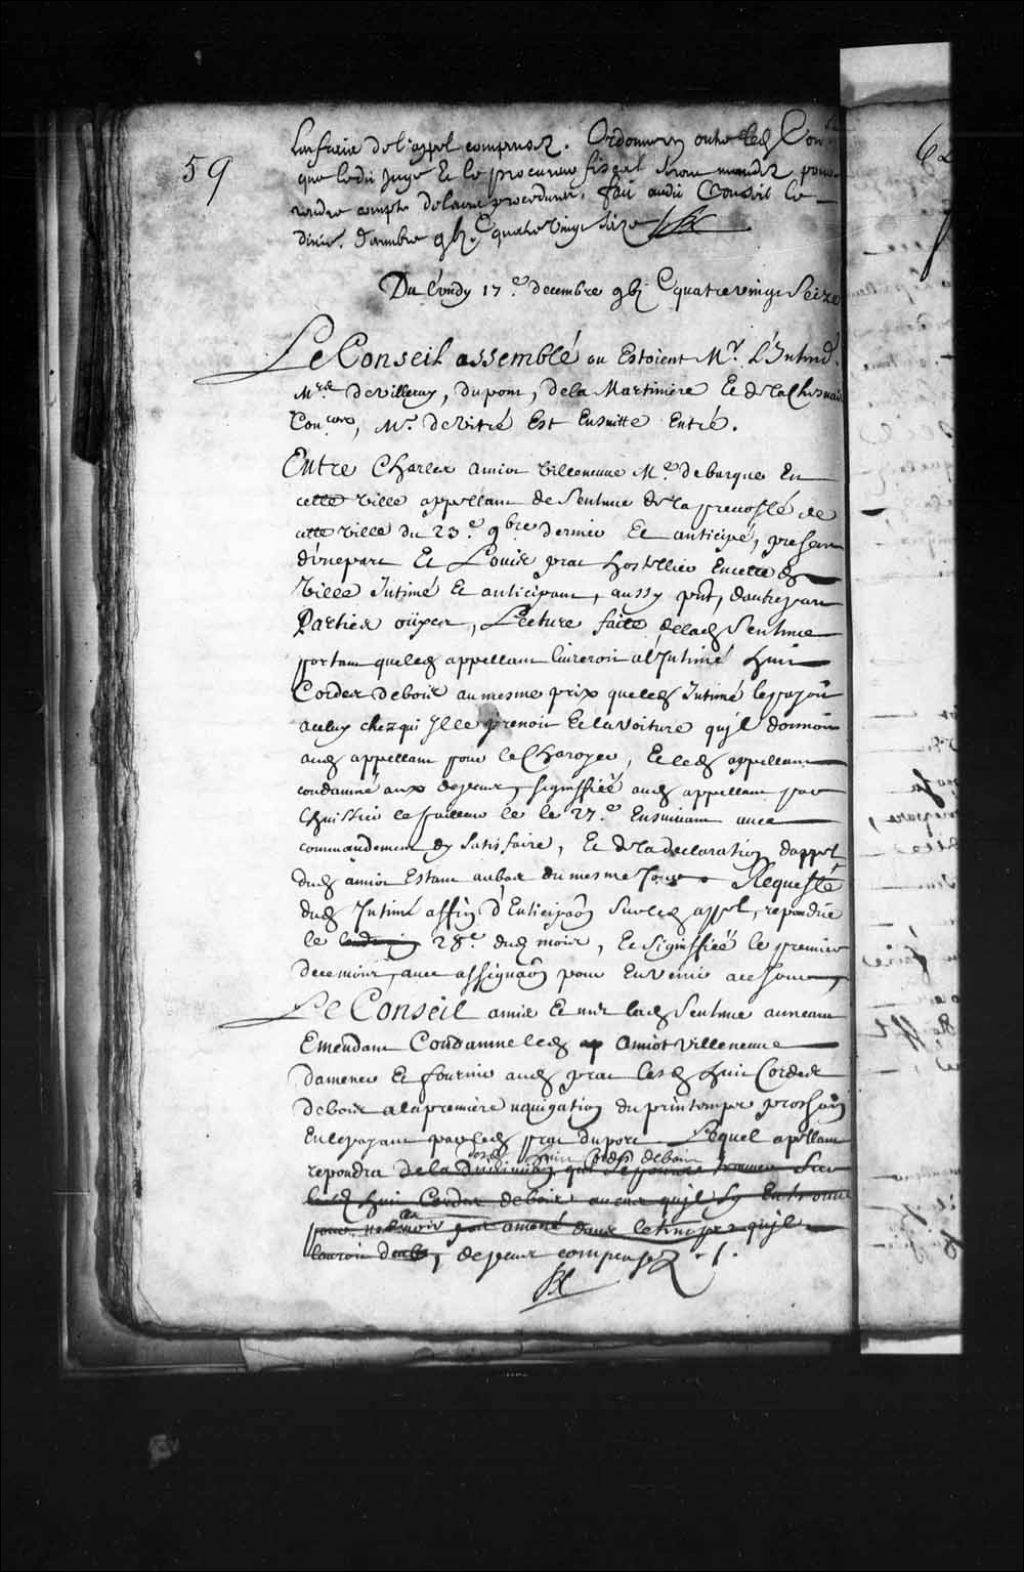 59
Les frais de l'appel compensez. Ordonne en outre led Con.el
que ledit Juge Et le procureur fiscal seront mandez pour
rendre compte de leur procedure. fait audit Conseil le
dixe. decembre gbj C quatre vingt seize
Du Lundy 17.e decembre gbj C quatre vingt Seize
Le Conseil assemblé ou Estoient Mr. L'Intend.
Mrs de Villeray, dupont, de la Martiniere Et de la Chesnaie
Con.ers, Mr. de Vitré Est Ensuitte Entré.
Entre Charles amiot Villeneuve Me. de barque En
cette Ville appellant de Sentence de la prevosté de
cette Ville du 23.e 9bre dernier Et anticipé, present
d'une part Et Louis prat hostellier En cette d
Ville Intimé Et anticipant, aussy pnt, dautre part
Parties oüyes, Lecture faite de lad Sentence
portant que led appellant livreroit a l'Intimé huit
Cordes de bois au mesme prix que led Intimé le payoit
a celuy chez qui Il le prenoit Et la voiture qu'il donnoit
aud appellant pour le Charoyer, Et led appellant
condamné aux depens, signiffiée aud appellant par
huissier le 27.e Ensuivant avec
commandement dy satisfaire, Et de la declaration dappel
dud amiot Estant au bas du mesme Jour. Requeste
dud Intimé affin d'Anticipaõn Sur led appel, repondüe
le 28.e dud mois, Et signiffiée le premier
de ce mois, avec assignaõn pour En venir a ce Jour
Le Conseil a mis Et met lad Sentence au neant
Emendant Condamne led ap Amiot Villeneuve
damener Et fournir aud prat lesd huit Cordes
de bois a la premiere navigation du printemps prochain
En le payant par led prat du port Lequel apellant
repondra de la diminution qui se pourra trouver Sur
lesd huit Cordes de bois au cas qu'il sy En trouve
pour ne l'avoir pas amené dans le temps qu'il
, depens compensez ./.